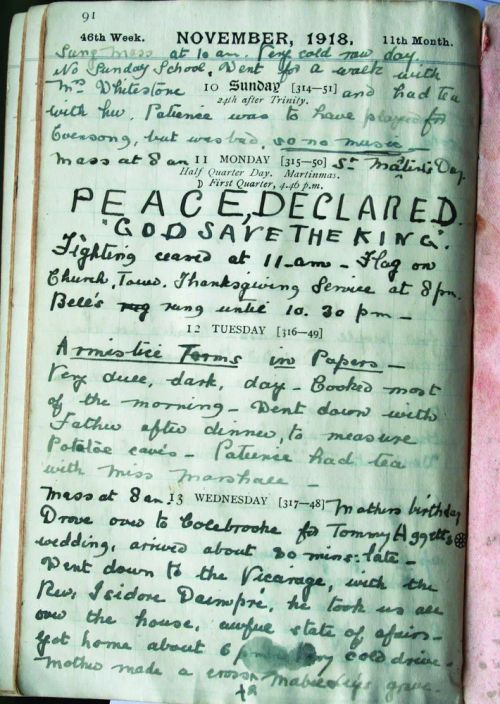 91
46th Week. NOVEMBER, 1918. 11th Month.
Sung Mass at 10 am. Very cold raw day.
No Sunday School. Went for a walk with
Mrs Whitestone 10 Sunday [314—51] and had tea
24th after Trinity.
with her. Patience was to have played for
Evensong, but was bad, so no music —
Mass at 8 am 11 MONDAY [315—50] St Martin's Day.
Half Quarter Day. Martinmas.
D First Quarter, 4.46 p.m.
PEACE, DECLARED.
"GOD SAVE THE KING".
Fighting ceased at 11-am – Flag on
Church, Tower. Thanksgiving Service at 8 pm.
Bells rung until 10. 30 pm —
12 TUESDAY [316—49]
Armistice Terms in Papers —
Very dull, dark, day – Cooked most
of the morning – Went down with
Father after dinner, to measure
Potatoe caves – Patience had tea
with Miss Marshall —
Mass at 8 am. 13 WEDNESDAY [317—48] Mothers birthday
Drove over to Colebrooke for Tommy Aggett's
wedding, arrived about 30 mins: late –
Went down to the Vicarage, with the
Rev: Isidore Daimpré, he took us all
over the house, awful state of afairs –
Got home about 6 pm very cold drive –
Mother made a cross for grave –